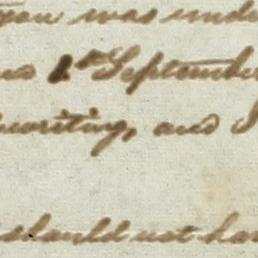 you was unde
1st September
writing, and I
should not ha